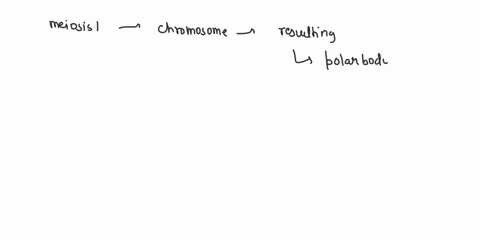 meiosis I → chromosome → resulting
↳ polar bod